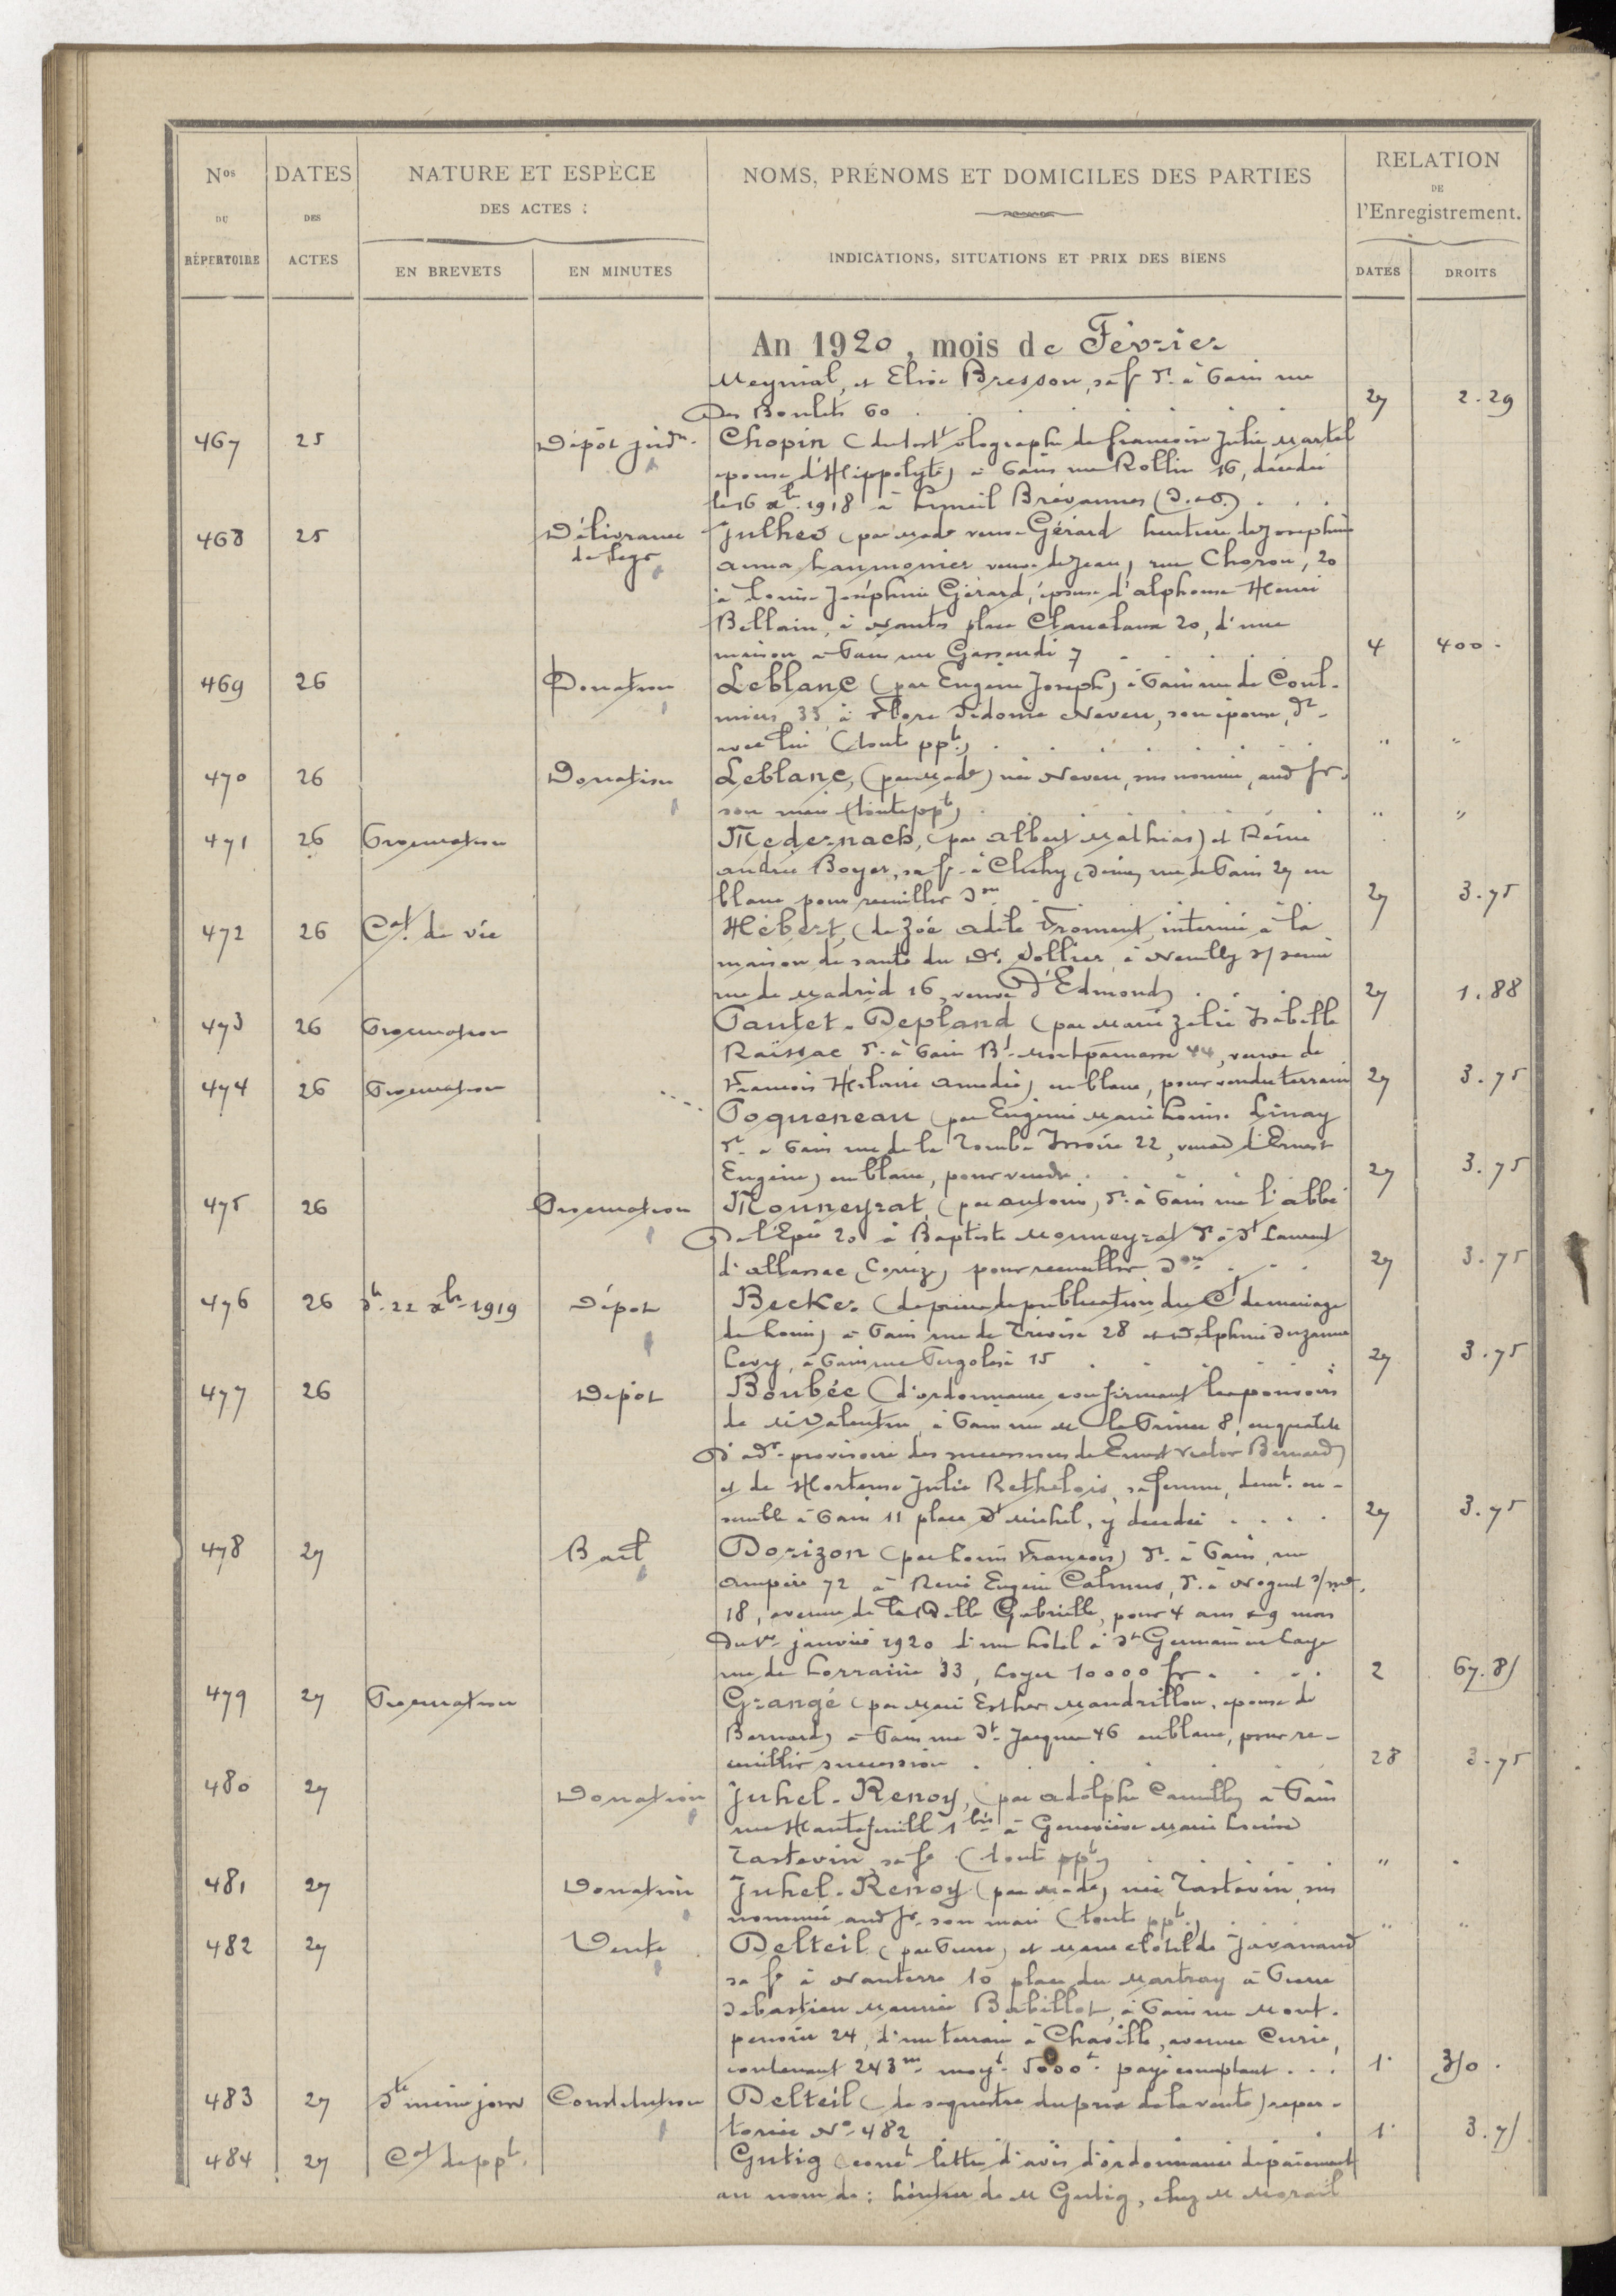 Nos DU RÉPERTOIRE
DATES DES ACTES
NATURE ET ESPÈCE DES ACTES :
EN BREVETS
EN MINUTES
NOMS, PRÉNOMS ET DOMICILES DES PARTIES
INDICATIONS, SITUATIONS ET PRIX DES BIENS
RELATION DE l'Enregistrement.
DATES
DROITS
An 1920, mois de Février
Meynial, et Elise Bresson, sa fe dt à Paris rue
Des Boulets 60 27 2.29
467 25 Dépôt judre Chopin (du testt olographe de Francoise Julie Martel
epouse d'Hippolyte) à Paris rue Rollin 16, décédée
le 16 xbre 1918 à Limeil Brévannes (S.&O.)
468 25 Délivrance de legs Julhes (par Made veuve Gérard héritière de Joséphine
Anna Laumonier veuve de Jean, rue Choron, 20
à Louise Joséphine Gérard, épouse d'Alphonse Henri
Bellain, à Nantes place 20, d'une
maison à Paris rue Gassendi 7 4 400.
469 26 Donation Leblanc (par Eugène Joseph) à Paris rue de Coul-
miers 33 à Flore Sidonie Neveu, son épouse, dt
avec lui (toute ppté) " "
470 26 Donation Leblanc, (par Made) née Neveu, sus nommée, aud sr.
son mari (toute ppté) " "
471 26 Procuration Medernach, (par Albert Mathias) et Rémie
Andrée Boyer, sa fe à Clichy (Seine) rue de Paris 27 en
blanc pour recueillir son 27 3.75
472 26 Cat. de vie Hébert, (de Zoé Adèle Froment, internée à la
maison de santé du Dr. Sollier, à Neuilly s/ seine
rue de Madrid 16, veuve d'Edmond) 27 1.88
473 26 Procuration Pautet-Depland (par Marie Zélie Isabelle
Raïssac dt à Paris Bd Montparnasse 44, veuve de
François Hilaire Amédée) en blanc, pour vendre terrain 27 3.75
474 26 Procuration Poqueneau (par Eugénie Marie Louise Linay
dt à Paris rue de la Tombe Issoire 22, veuve d'Ernest
Eugène) en blanc, pour vendre 27 3.75
475 26 Procuration Monneyrat, (par Antoine, dt à Paris rue l'abbé
De l'Epée 20 à Baptiste Monneyrat dt à St Laurent
d'Allassac (Corrèze) pour recueillir son 27 3.75
476 26 dt 22 xbre 1919 Dépôt Becker (de pièces de publication du Ct de mariage
de Louis) à Paris rue de Trévise 28 et Delphine Suzanne
Levy, à Paris rue Pergolèse 15 27 3.75
477 26 Dépôt Boubée (d'ordonnance confirmant les pouvoirs
de M Valentin, à Paris rue Mr le Prince 8, en qualité
D'adr provisoire des successions de Ernest Victor Bernard)
et de Hortense Julie Rethelois, sa femme, demt en-
semble à Paris 11 place St Michel, y décédés 27 3.75
478 27 Bail Dorizon (par Louis François) dt à Paris, rue
Ampère 72 à René Eugène Calmus, dt à Nogent s/ me.
18, avenue de la Belle Gabrielle, pour 4 ans & 9 mois
Du 1er janvier 1920 d'un hôtel à St Germain en Laye
rue de Lorraine 33, loyer 10000 fr 2 67.81
479 27 Procuration Grangé (par Marie Esther Mandrillon, épouse de
Bernard) à Paris rue St Jacques 46 en blanc, pour re-
cueillir succession 28 3.75
480 27 Donation Juhel-Renoy, (par Adolphe Camille) à Paris
rue Hautefeuille 1 bis à Geneviève Marie Louise
Tastevin, sa fe (toute ppté) " .
481 27 Donation Juhel-Renoy (par Made) née Tastevin, sus
nommée aud sr. son mari (toute ppté.) " "
482 27 Vente Delteil (par Pierre) et Marie Clotilde Javanaud
sa fe à Nanterre 10 place du Martray à Pierre
Sebastien Maurice Babillot, à Paris rue Mont-
pensier 24, d'un terrain à Chaville, avenue Curie,
contenant 243m moyt 5000f payé comptant 1. 350.
483 27 dt même jour Constitution Delteil (de sequestre du prix de la vente) réper-
toriée No 482 1. 3.75
484 27 Cat de ppté. Gutig (conct lettre d'avis d'ordonnance de paiement
au nom de : héritiers de M Gutig, chez M